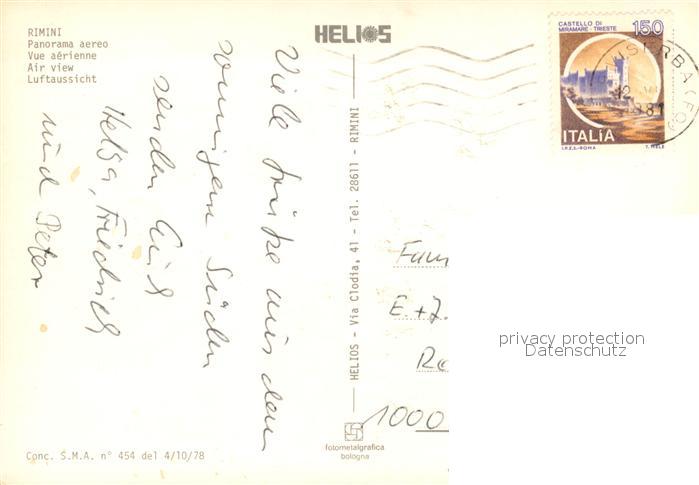 RIMINI
Panorama aereo
Vue aérienne
Air view
Luftaussicht
HELIOS
CASTELLO DI
MIRAMARE - TRIESTE
150
ITALIA
I.P.Z.S.-ROMA
T. MELE
Viele Grüße aus dem
sonnigen Süden
senden Euch
Helga, Friedrich
und Peter
HELIOS - Via Clodia, 41 - Tel. 28611 - RIMINI
Fam
E. + J.
1000
privacy protection
Datenschutz
fotometalgrafica
bologna
Conc. S.M.A. n° 454 del 4/10/78